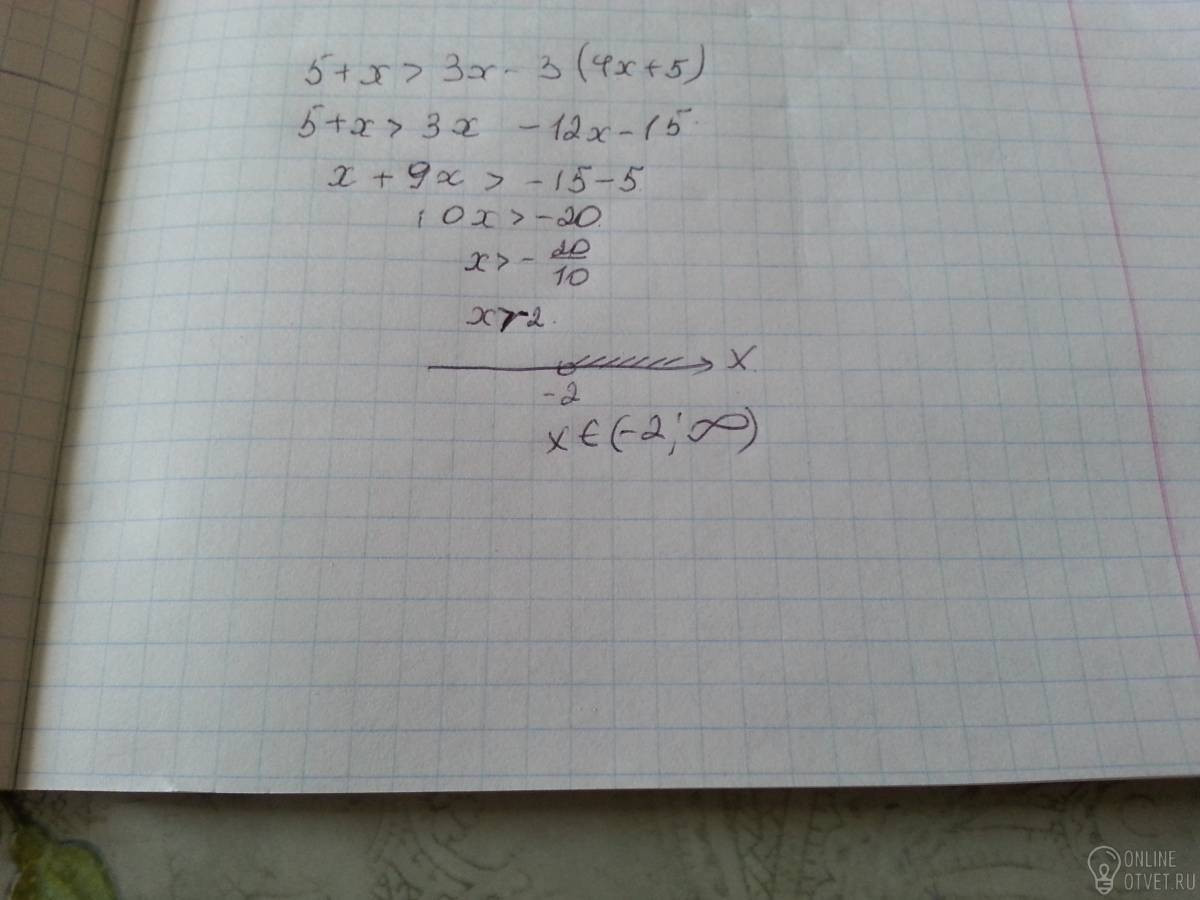 5+x > 3x - 3 (4x+5)
5+x > 3x - 12x - 15
x + 9x > -15 - 5
10x > -20
x > - 20/10
x > -2
x
-2
x ∈ (-2; ∞)
ONLINE
OTVET.RU